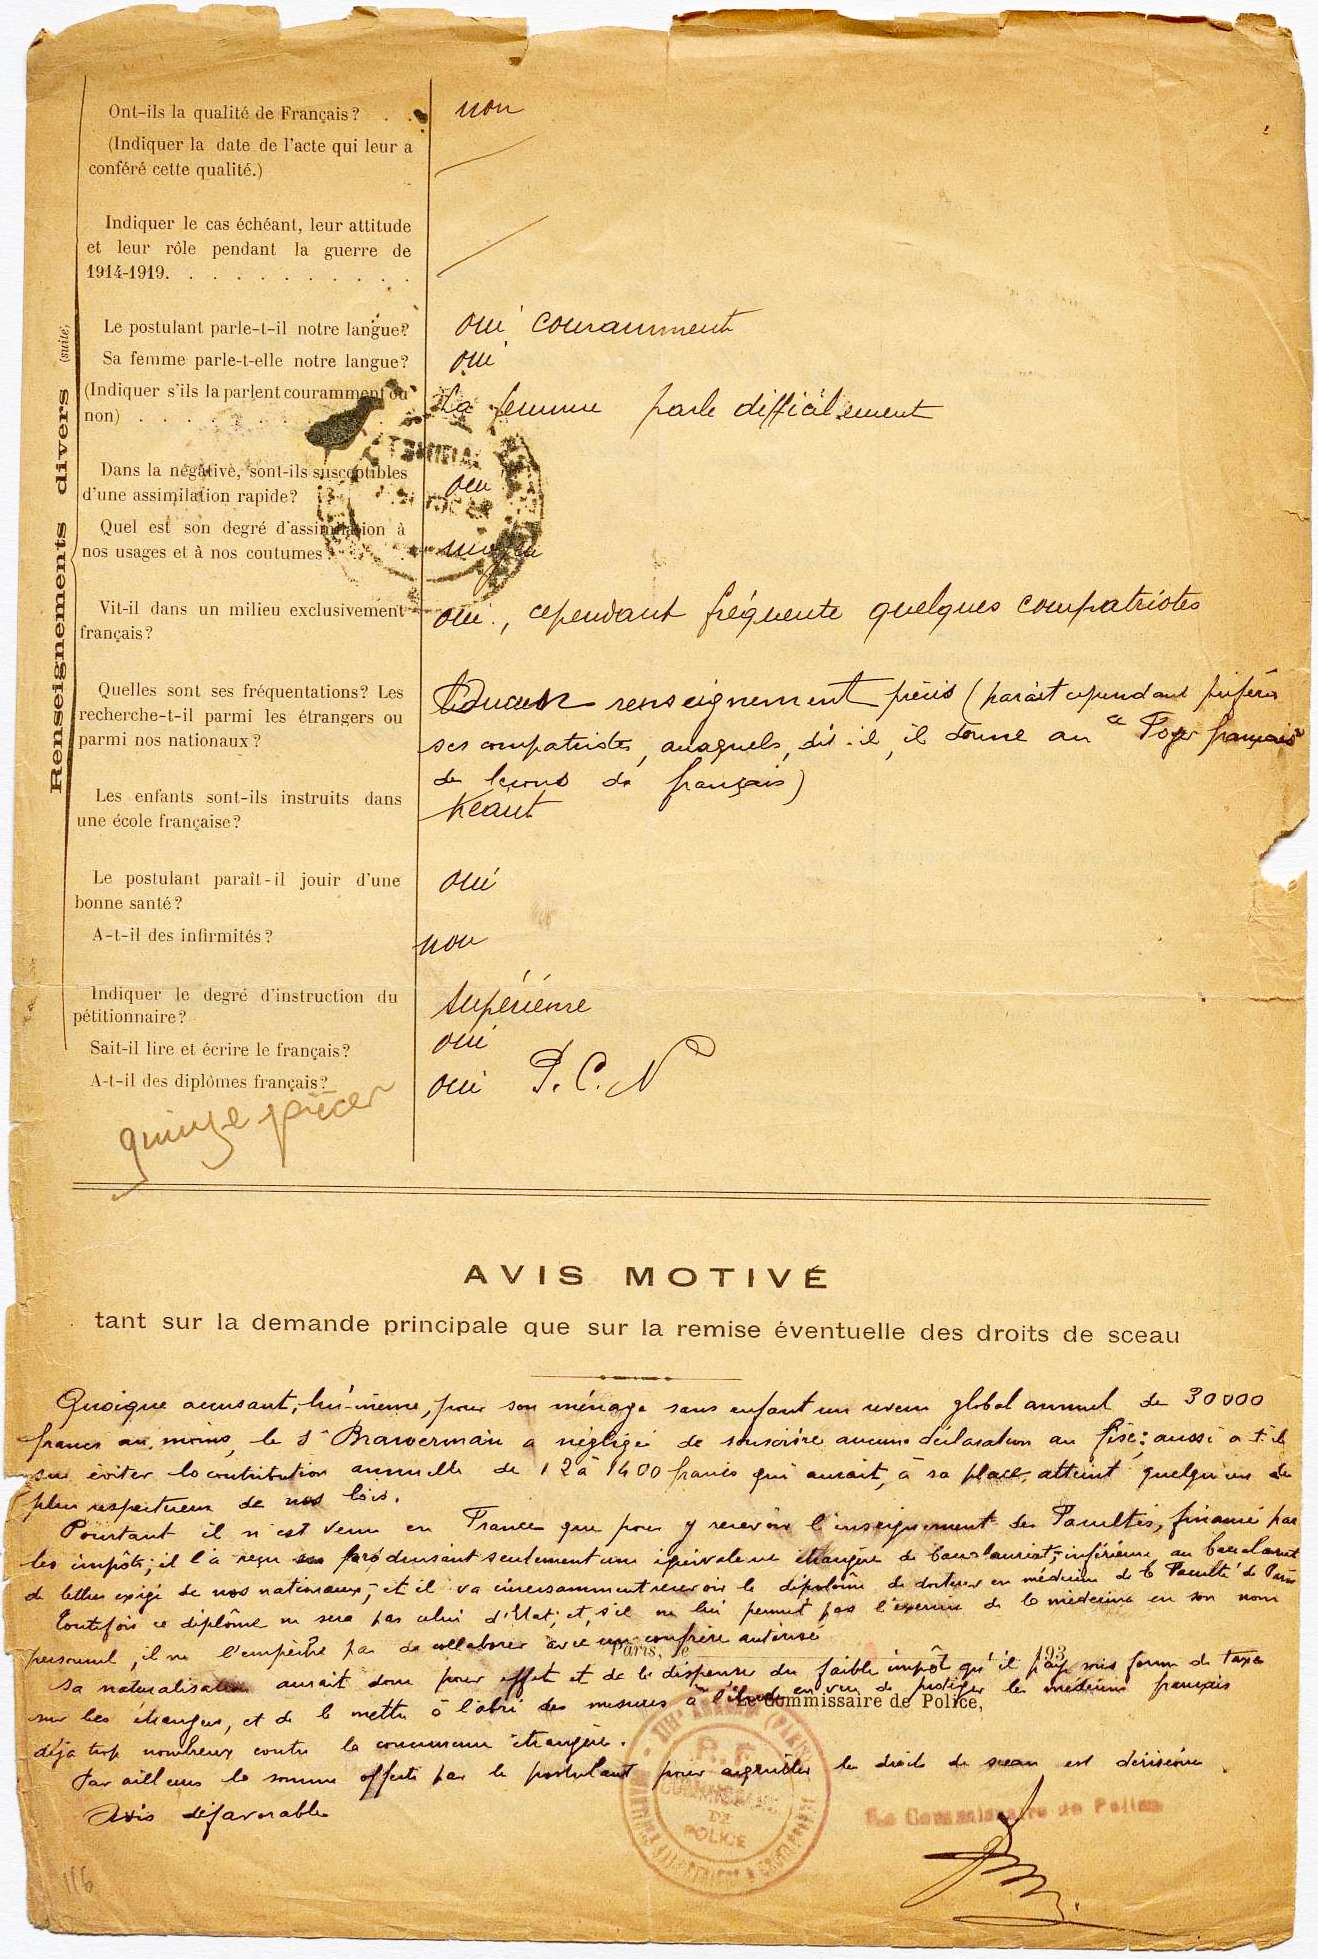 Ont-ils la qualité de Français? . . non
(Indiquer la date de l'acte qui leur a
conféré cette qualité.)
Indiquer le cas échéant, leur attitude
et leur rôle pendant la guerre de
1914-1919. . . . . . . . . . .
Le postulant parle-t-il notre langue? oui couramment
Sa femme parle-t-elle notre langue? oui
(Indiquer s'ils la parlent couramment ou
non) . . . . . . . . La femme parle difficilement
Dans la négative, sont-ils susceptibles
d'une assimilation rapide? oui
Quel est son degré d'assimilation à
nos usages et à nos coutumes? moyen
Vit-il dans un milieu exclusivement
français? oui, cependant fréquente quelques compatriotes
Quelles sont ses fréquentations? Les
recherche-t-il parmi les étrangers ou
parmi nos nationaux?
Aucun renseignement précis (parait cependant préférer
ses compatriotes, auxquels, dit-il, il donne au "Foyer français"
de leçons de français)
Les enfants sont-ils instruits dans
une école française? Néant
Le postulant paraît-il jouir d'une
bonne santé? oui
A-t-il des infirmités? non
Indiquer le degré d'instruction du
pétitionnaire? supérieure
Sait-il lire et écrire le français? oui
A-t-il des diplômes français? oui P.C.N
Renseignements divers (suite)
quinze pièces
AVIS MOTIVÉ
tant sur la demande principale que sur la remise éventuelle des droits de sceau
Quoique accusant, lui-même, pour son ménage sans enfant un revenu global annuel de 30000
francs au moins, le Sr Brawerman a négligé de souscrire aucune déclaration au fisc: aussi a-t-il
su éviter la contribution annuelle de 12 à 1400 francs qui aurait, à sa place, atteint quelqu'un de
plus respectueux de nos lois.
Pourtant il n'est venu en France que pour y recevoir l'enseignement des Facultés, financé par
les impôts; il l'a reçu en produisant seulement une équivalence étrangère de baccalauréat, inférieure au baccalauréat
de lettres exigé de nos nationaux, et il va incessamment recevoir le diplôme de docteur en médecine de la Faculté de Paris
Toutefois ce diplôme ne sera pas celui d'Etat; et, s'il ne lui permet pas l'exercice de la médecine en son nom
personnel, il ne l'empêche pas de collaborer avec un confrère autorisé
Paris, le 193
Sa naturalisation aurait donc pour effet et de le dispenser du faible impôt qu'il paye sous forme de taxe
sur les étrangers, et de le mettre à l'abri des mesures à l'étude en vue de protéger les médecins français
Le Commissaire de Police,
déjà trop nombreux contre la concurrence étrangère.
Par ailleurs la somme offerte par le postulant pour acquitter les droits de sceau est dérisoire.
Avis défavorable
R.F.
COMMISSAIRE
DE
POLICE
Le Commissaire de Police
116